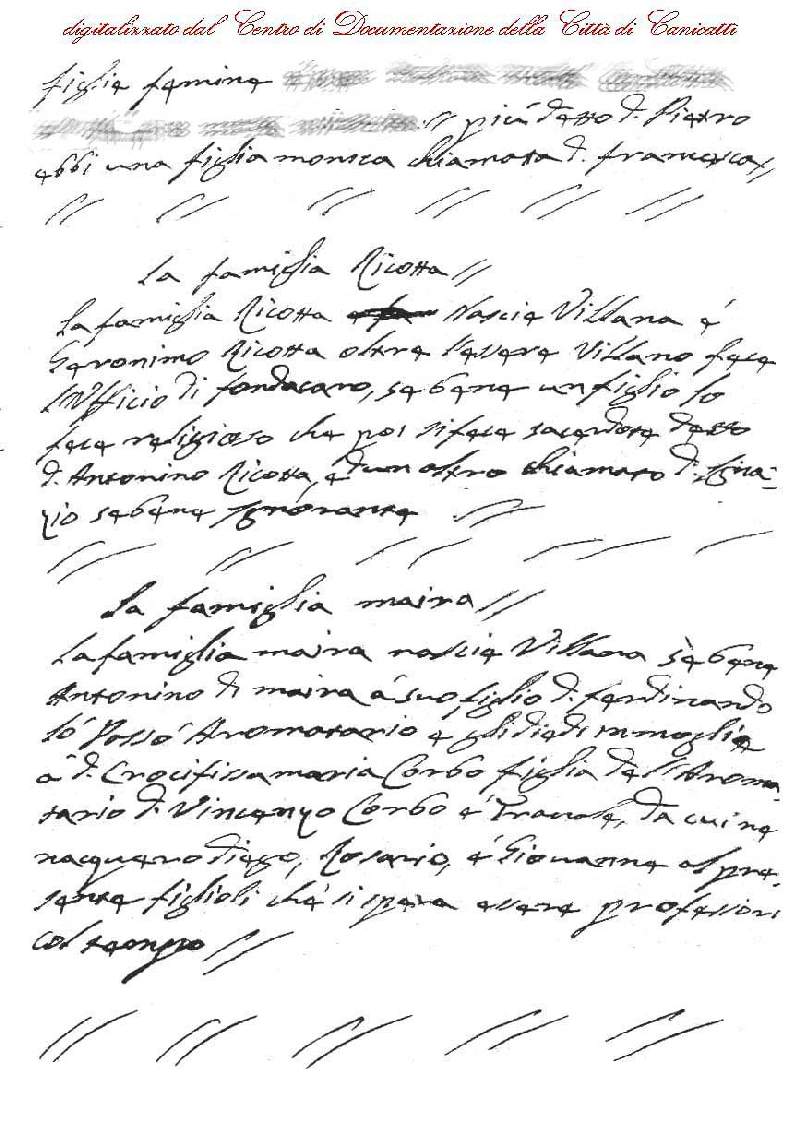 digitalizzato dal Centro di Documentazione della Città di Canicattì
figlie femine
più detto d. Pietro
ebbi una figlia monica chiamata d. francesca//
La famiglia Ricotta//
La famiglia Ricotta Nascie Villana é
Geronimo Ricotta oltre l'essere Villano fece
l'Ufficio di fondacaro, se bene un figlio lo
fece religioso che poi si fece sacerdote detto
d. Antonino Ricotta, è d'un altro chiamato d. Igna=
zio se bene Ignorante //
La famiglia maira//
La famiglia maira nascie Villana sè bene
Antonino di maira á suo figlio d. ferdinando
ló Aromatario e gli diedi in moglie
á d. Crocifissa maria Corbo figlia dell'Aroma
tario d. Vincenzo Corbo é da cui ne
nacquero diego, Rosario, é Giovanne al pre
sente figlioli ché si spera essere professori
col tempo //